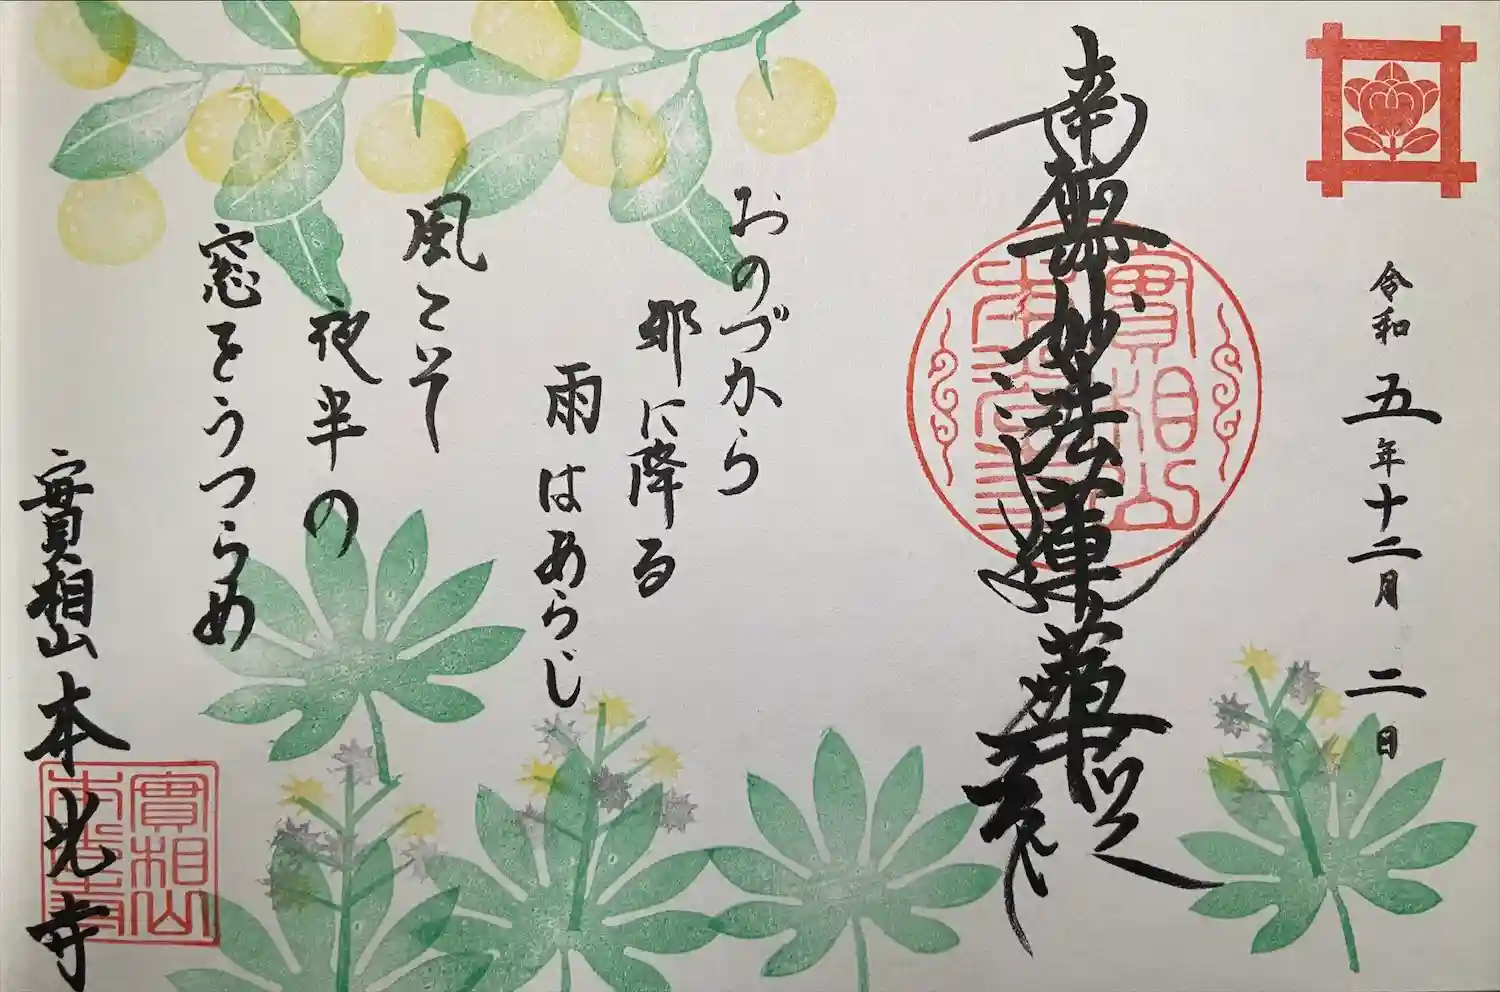 令和五年十二月二日
南無妙法蓮華経
實相山
本光寺
おのづから
邪に降る
雨はあらじ
風こそ夜半の
窓をうつらめ
實相山本光寺
實相山
本光寺